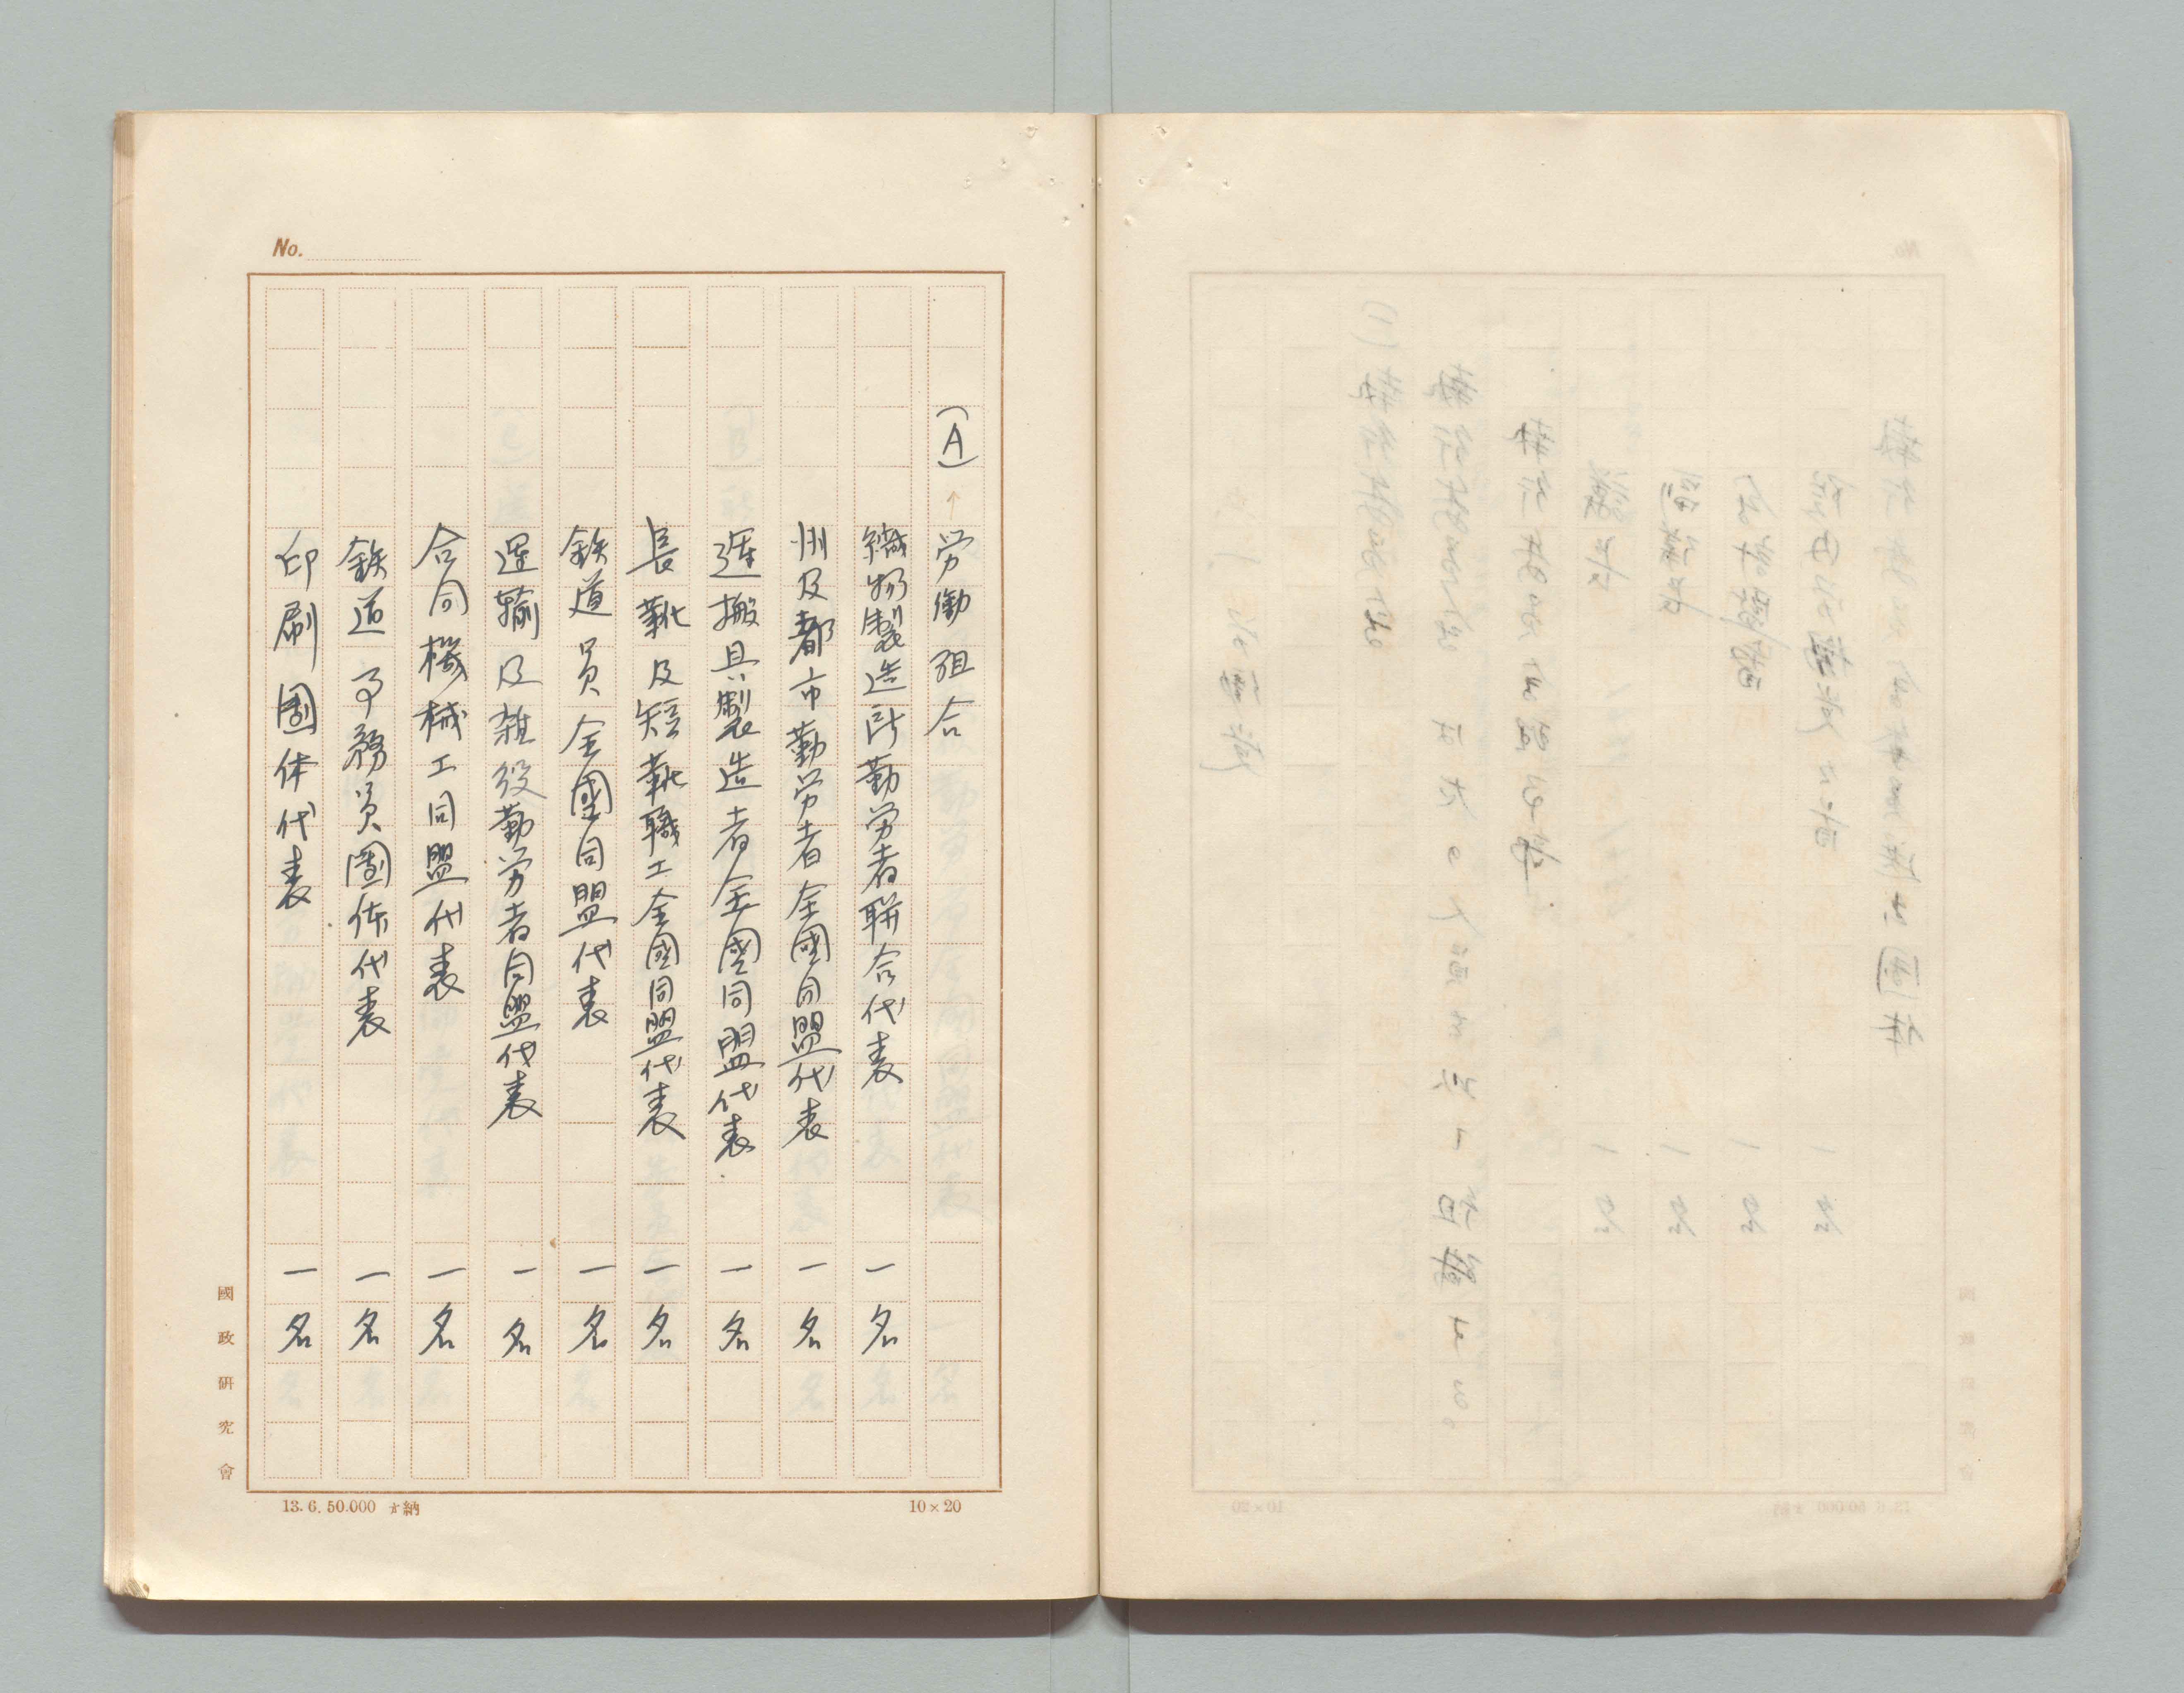 No.
(A) ↑ 労働組合
織物製造所勤労者聯合代表 一名
州及都市勤労者全國同盟代表 一名
運搬具製造者全國同盟代表 一名
長靴及短靴職工全國同盟代表 一名
鉄道員全國同盟代表 一名
運輸及雑役勤労者同盟代表 一名
合同機械工同盟代表 一名
鉄道事務員團体代表 一名
印刷團体代表 一名
國政研究會
13.6.50.000 納
10×20